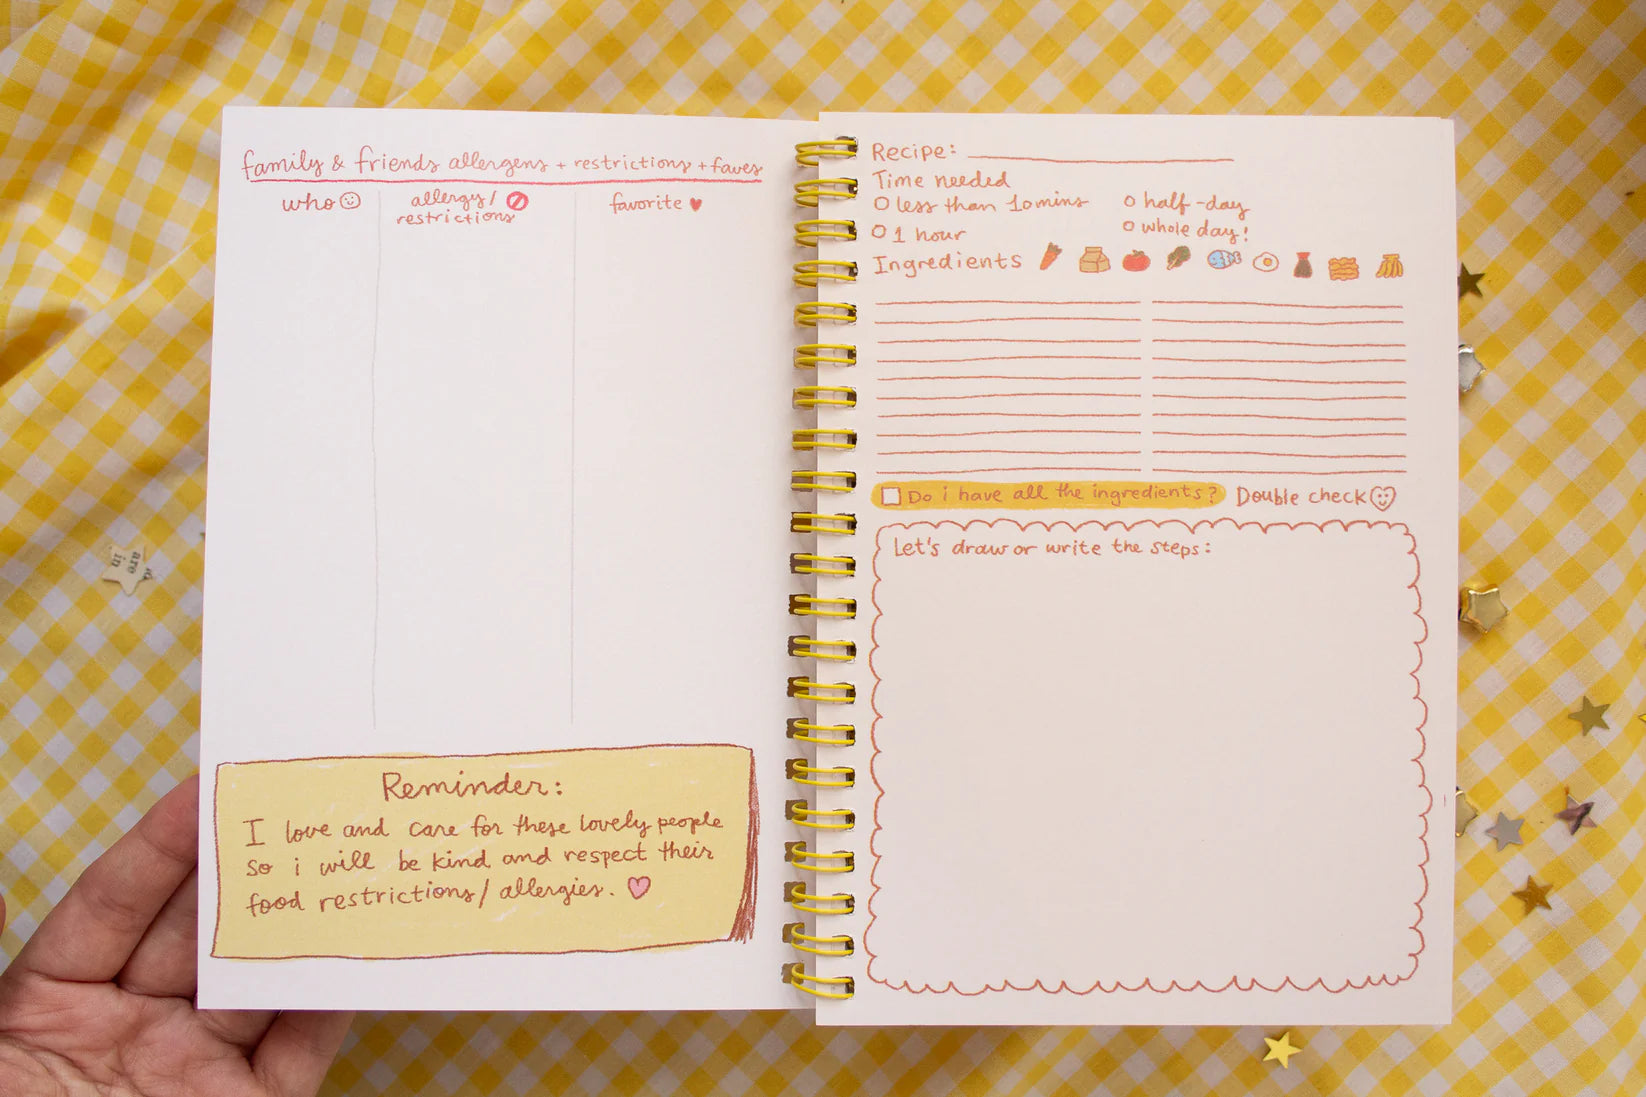 family & friends allergens + restrictions + faves
who
allergy/
restrictions
favorite
Reminder:
I love and care for these lovely people
so i will be kind and respect their
food restrictions/allergies.
Recipe:
Time needed
less than 10mins
half-day
1 hour
whole day!
Ingredients
Do i have all the ingredients? Double check
Let's draw or write the steps:
are
in